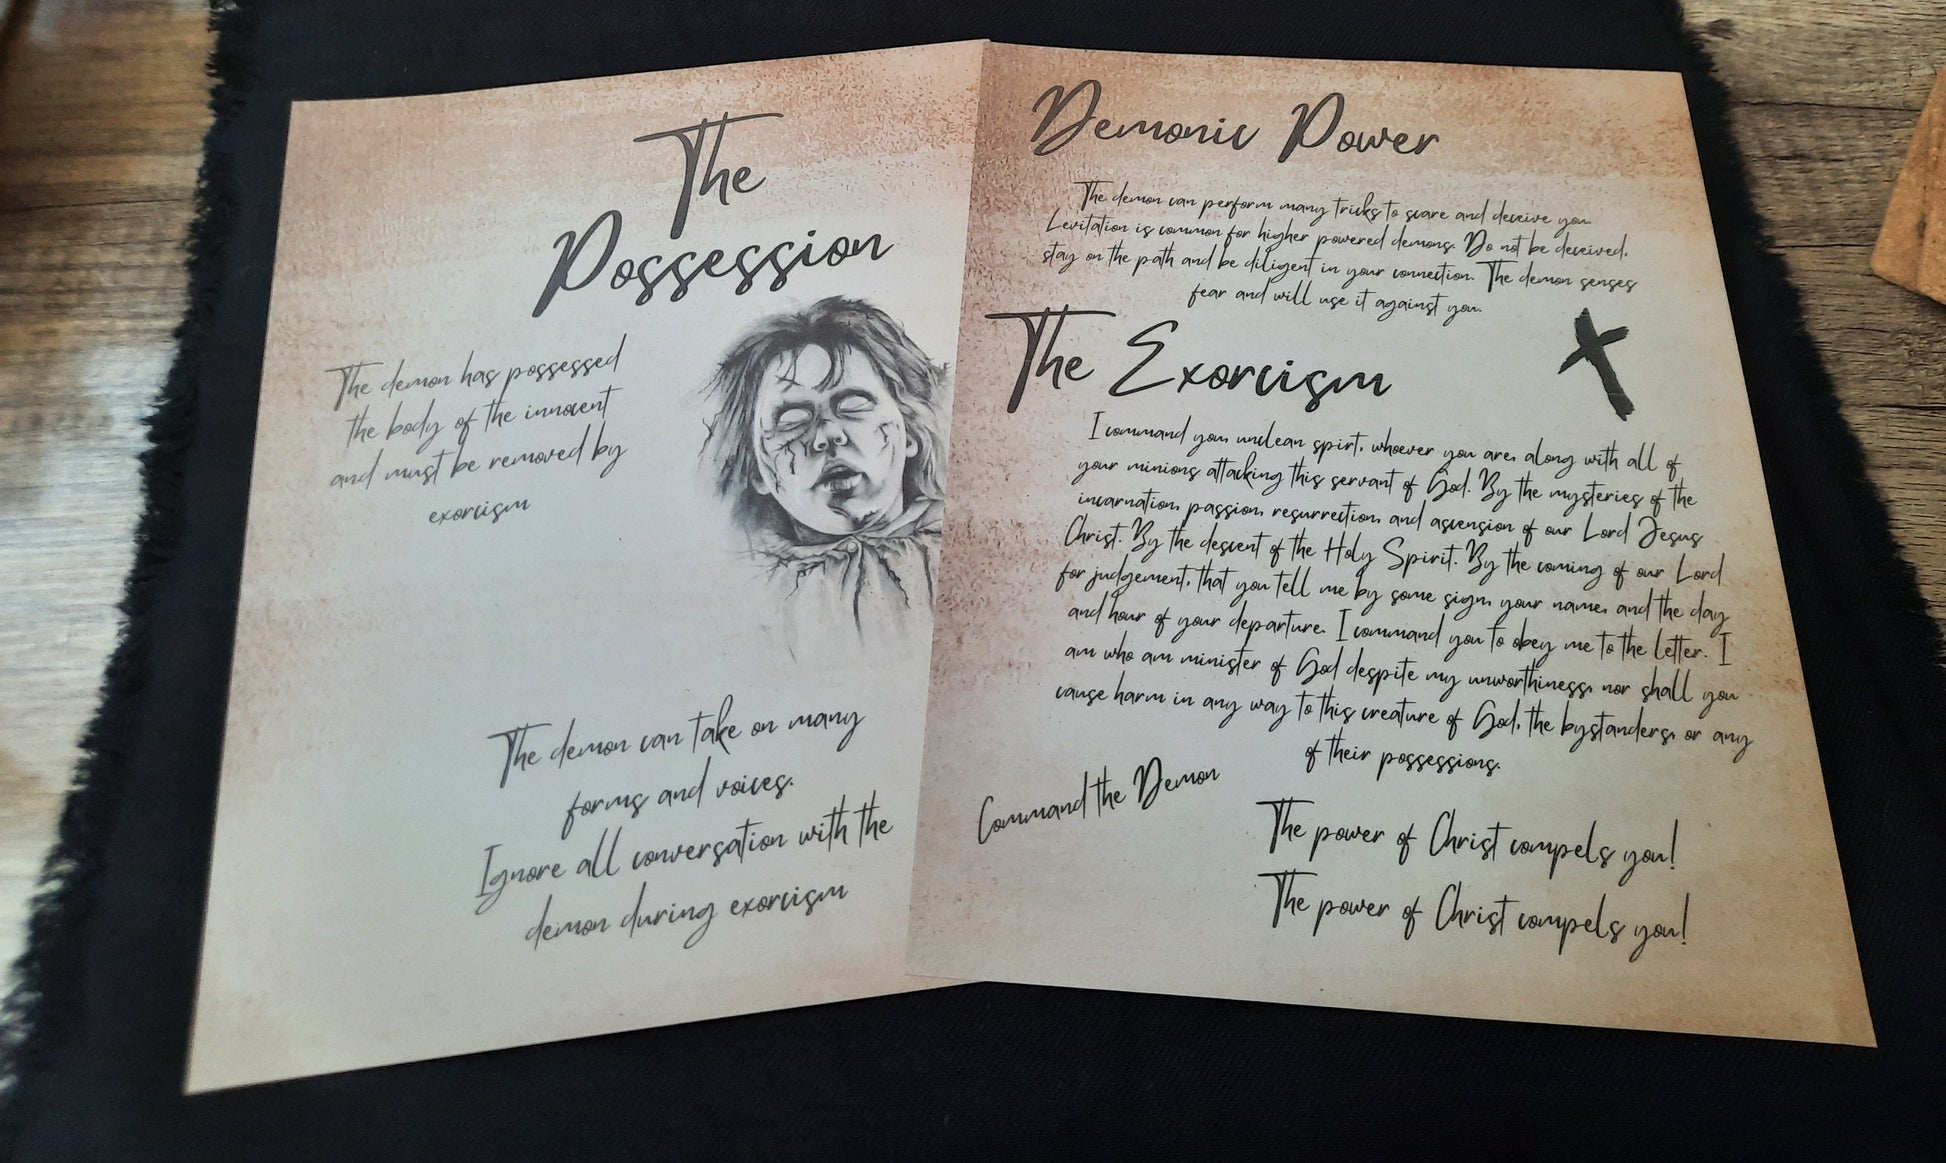 The
Possession
The demon has possessed
the body of the innocent
and must be removed by
exorcism
The demon can take on many
forms and voices.
Ignore all conversation with the
demon during exorcism
Demonic Power
The demon can perform many tricks to scare and deceive you.
Levitation is common for higher powered demons. Do not be deceived,
stay on the path and be diligent in your connection. The demon senses
fear and will use it against you.
The Exorcism
I command you, unclean spirt, whoever you are, along with all of
your minions attacking this servant of God. By the mysteries of the
incarnation, passion, resurrection, and ascension of our Lord Jesus
Christ. By the descent of the Holy Spirit. By the coming of our Lord
for judgement, that you tell me by some sign, your name, and the day
and hour of your departure. I command you to obey me to the letter. I
am who am minister of God despite my unworthiness, nor shall you
cause harm in any way to this creature of God, the bystanders, or any
of their possessions.
Command the Demon
The power of Christ compels you!
The power of Christ compels you!